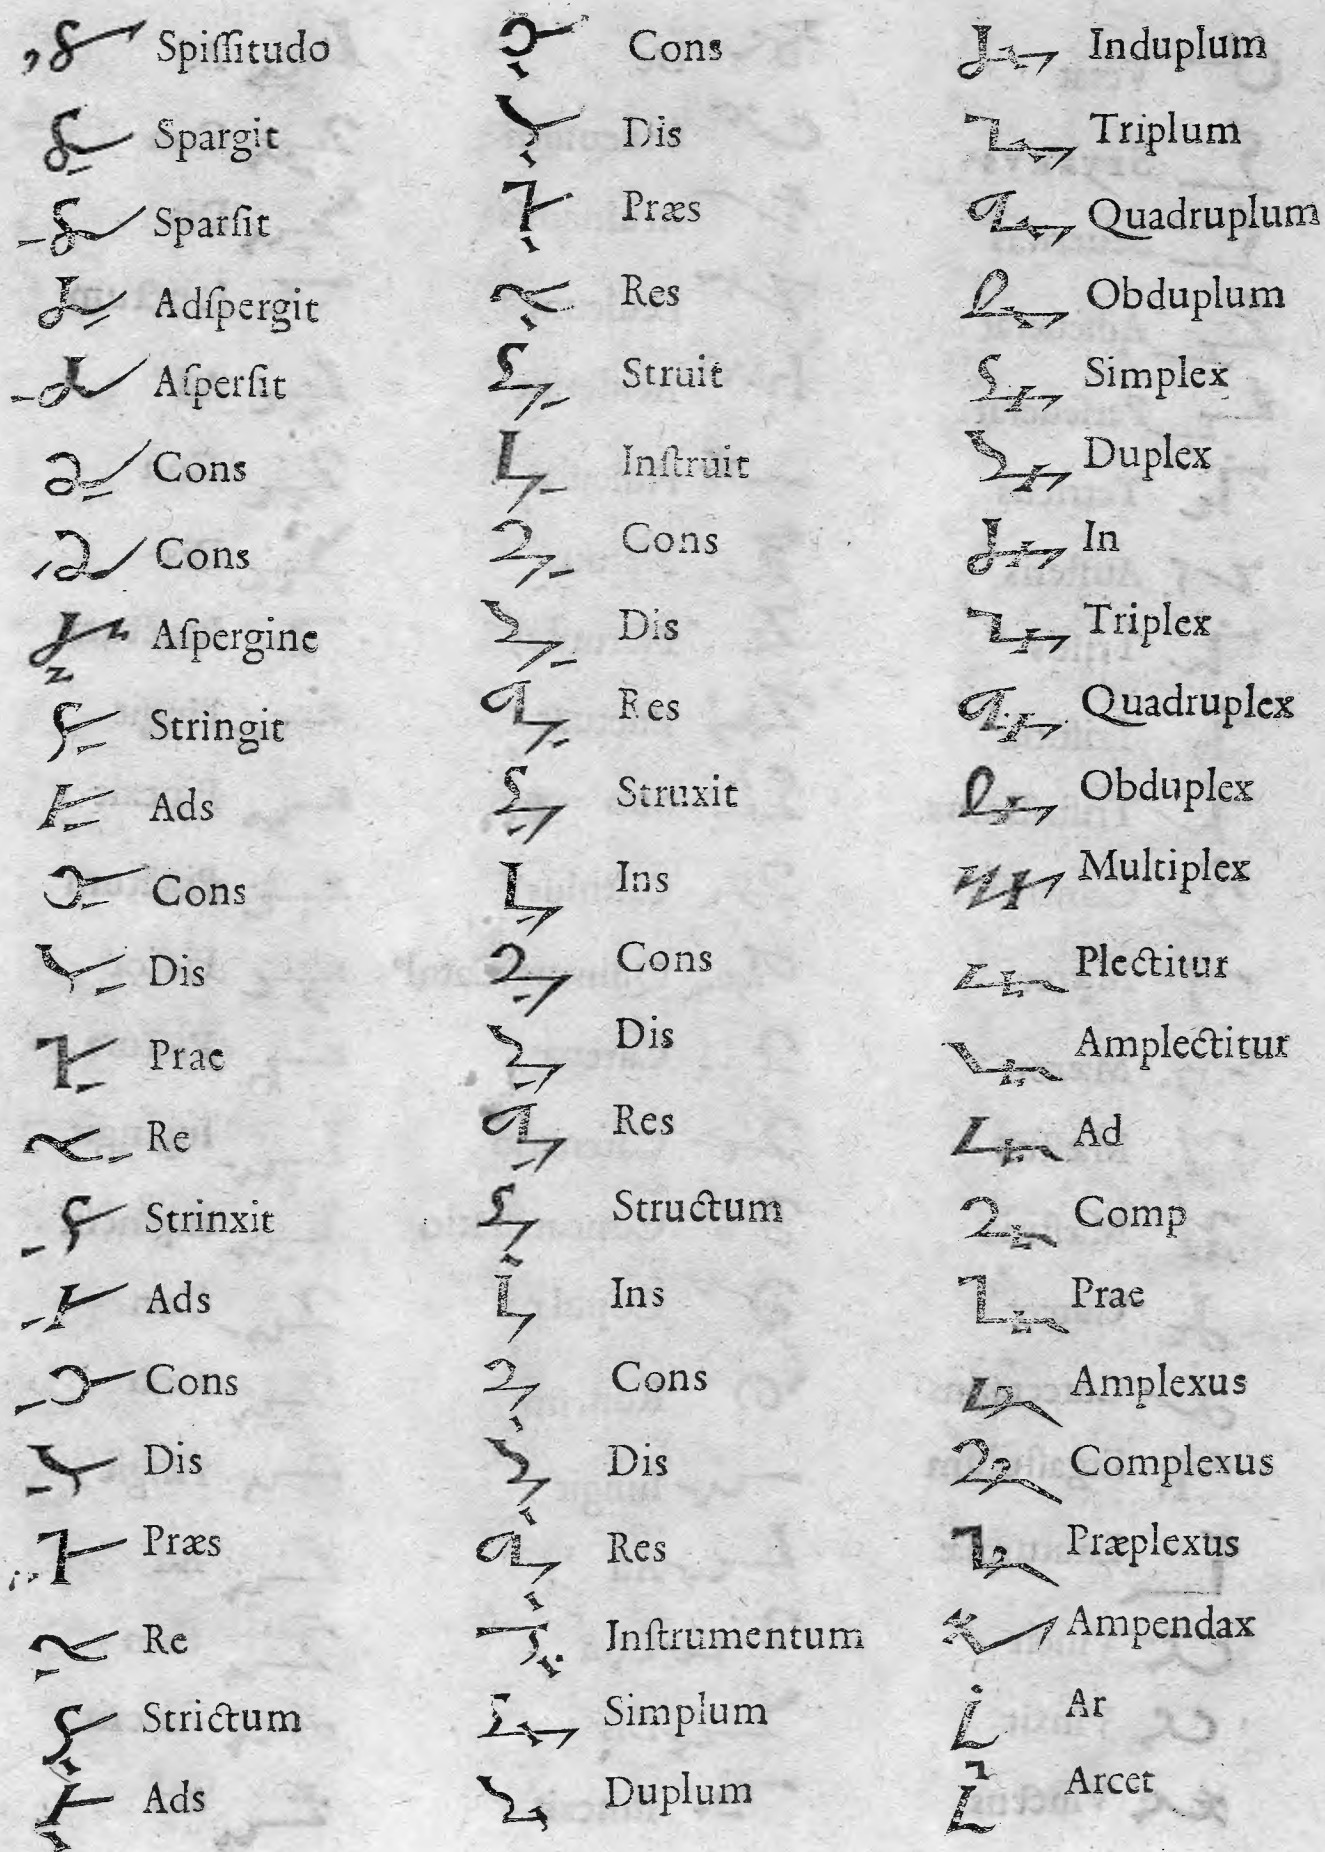 Spiſſitudo
Spargit
Sparſit
Adſpergit
Aſperſit
Cons
Cons
Aſpergine
Stringit
Ads
Cons
Dis
Prae
Re
Strinxit
Ads
Cons
Dis
Præs
Re
Strictum
Ads
Cons
Dis
Præs
Res
Struit
Inſtruit
Cons
Dis
Res
Struxit
Ins
Cons
Dis
Res
Structum
Ins
Cons
Dis
Res
Inſtrumentum
Simplum
Duplum
Induplum
Triplum
Quadruplum
Obduplum
Simplex
Duplex
In
Triplex
Quadruplex
Obduplex
Multiplex
Plectitur
Amplectitur
Ad
Comp
Prae
Amplexus
Complexus
Præplexus
Ampendax
Ar
Arcet